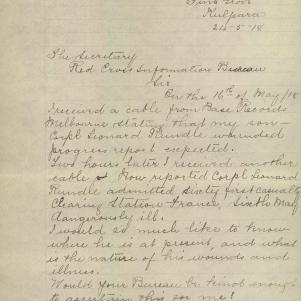 Kulpara
24-5-18
The Secretary
Red Cross Information Bureau
Sir
On the 16th of May/18
I received a cable from Base Records
Melbourne stating that my son
Corpl Leonard Rundle wounded
progress report expected.
Two hours later I received another
cable & Now reported Corpl Leonard
Rundle admitted sixty first casualty
Clearing Station France, Sixth May
dangerously ill.
I would so much like to know
where he is at present, and what
is the nature of his wounds and
illness.
Would your Bureau be kind enough
to ascertain this for me?